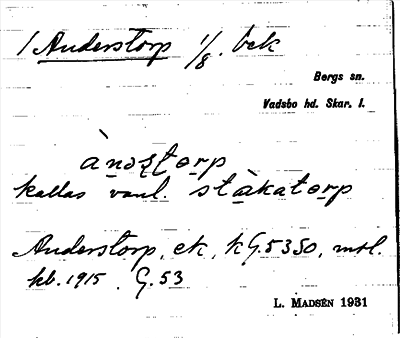 1 Anderstorp 1/8. bek
Bergs sn.
Vadsbo hd. Skar. l.
àndstorp
kallas vanl. stàkatorp
Anderstorp, ek, kG.5350, msl.
kb. 1915. G. 53
L. MADSÉN 1931